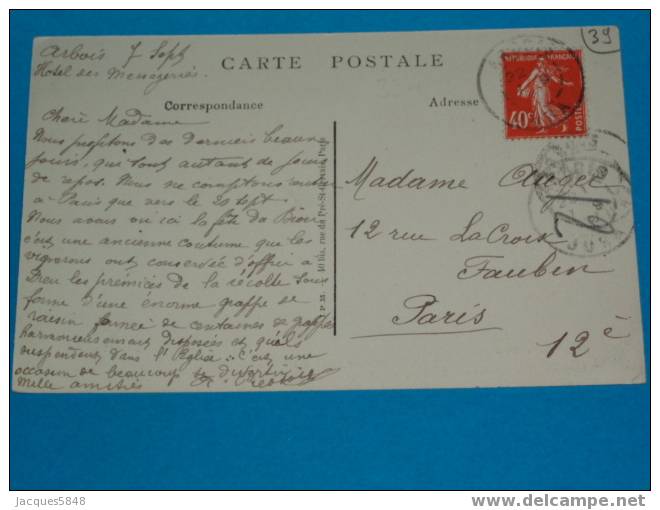 Arbois 7 Sept
Hotel des Messageries
39
CARTE POSTALE
Correspondance
Adresse
REPUBLIQUE FRANÇAISE
40c
POSTES
JURA
Chère Madame
Nous profitons des derniers beaux
jours, que sont autant de jours
de repos. Nous ne comptons rentrer
à Paris que vers le 20 sept.
Nous avons vu ici la fête du Biou
c'est une ancienne coutume que les
vignerons ont conservée d'offrir à
Dieu les prémices de la récolte sous
forme d'une énorme grappe de
raisin formée de centaines de grappes
harmonieusement disposées et qu'ils
suspendent dans l'Eglise. C'est une
occasion de beaucoup se divertir
Mille amitiés
Madame Augée
12 rue LaCroix
Faubin
Paris
12è
10 bis, rue du Pré-St-Gervais Paris
Jacques5848
www.delcampe.net